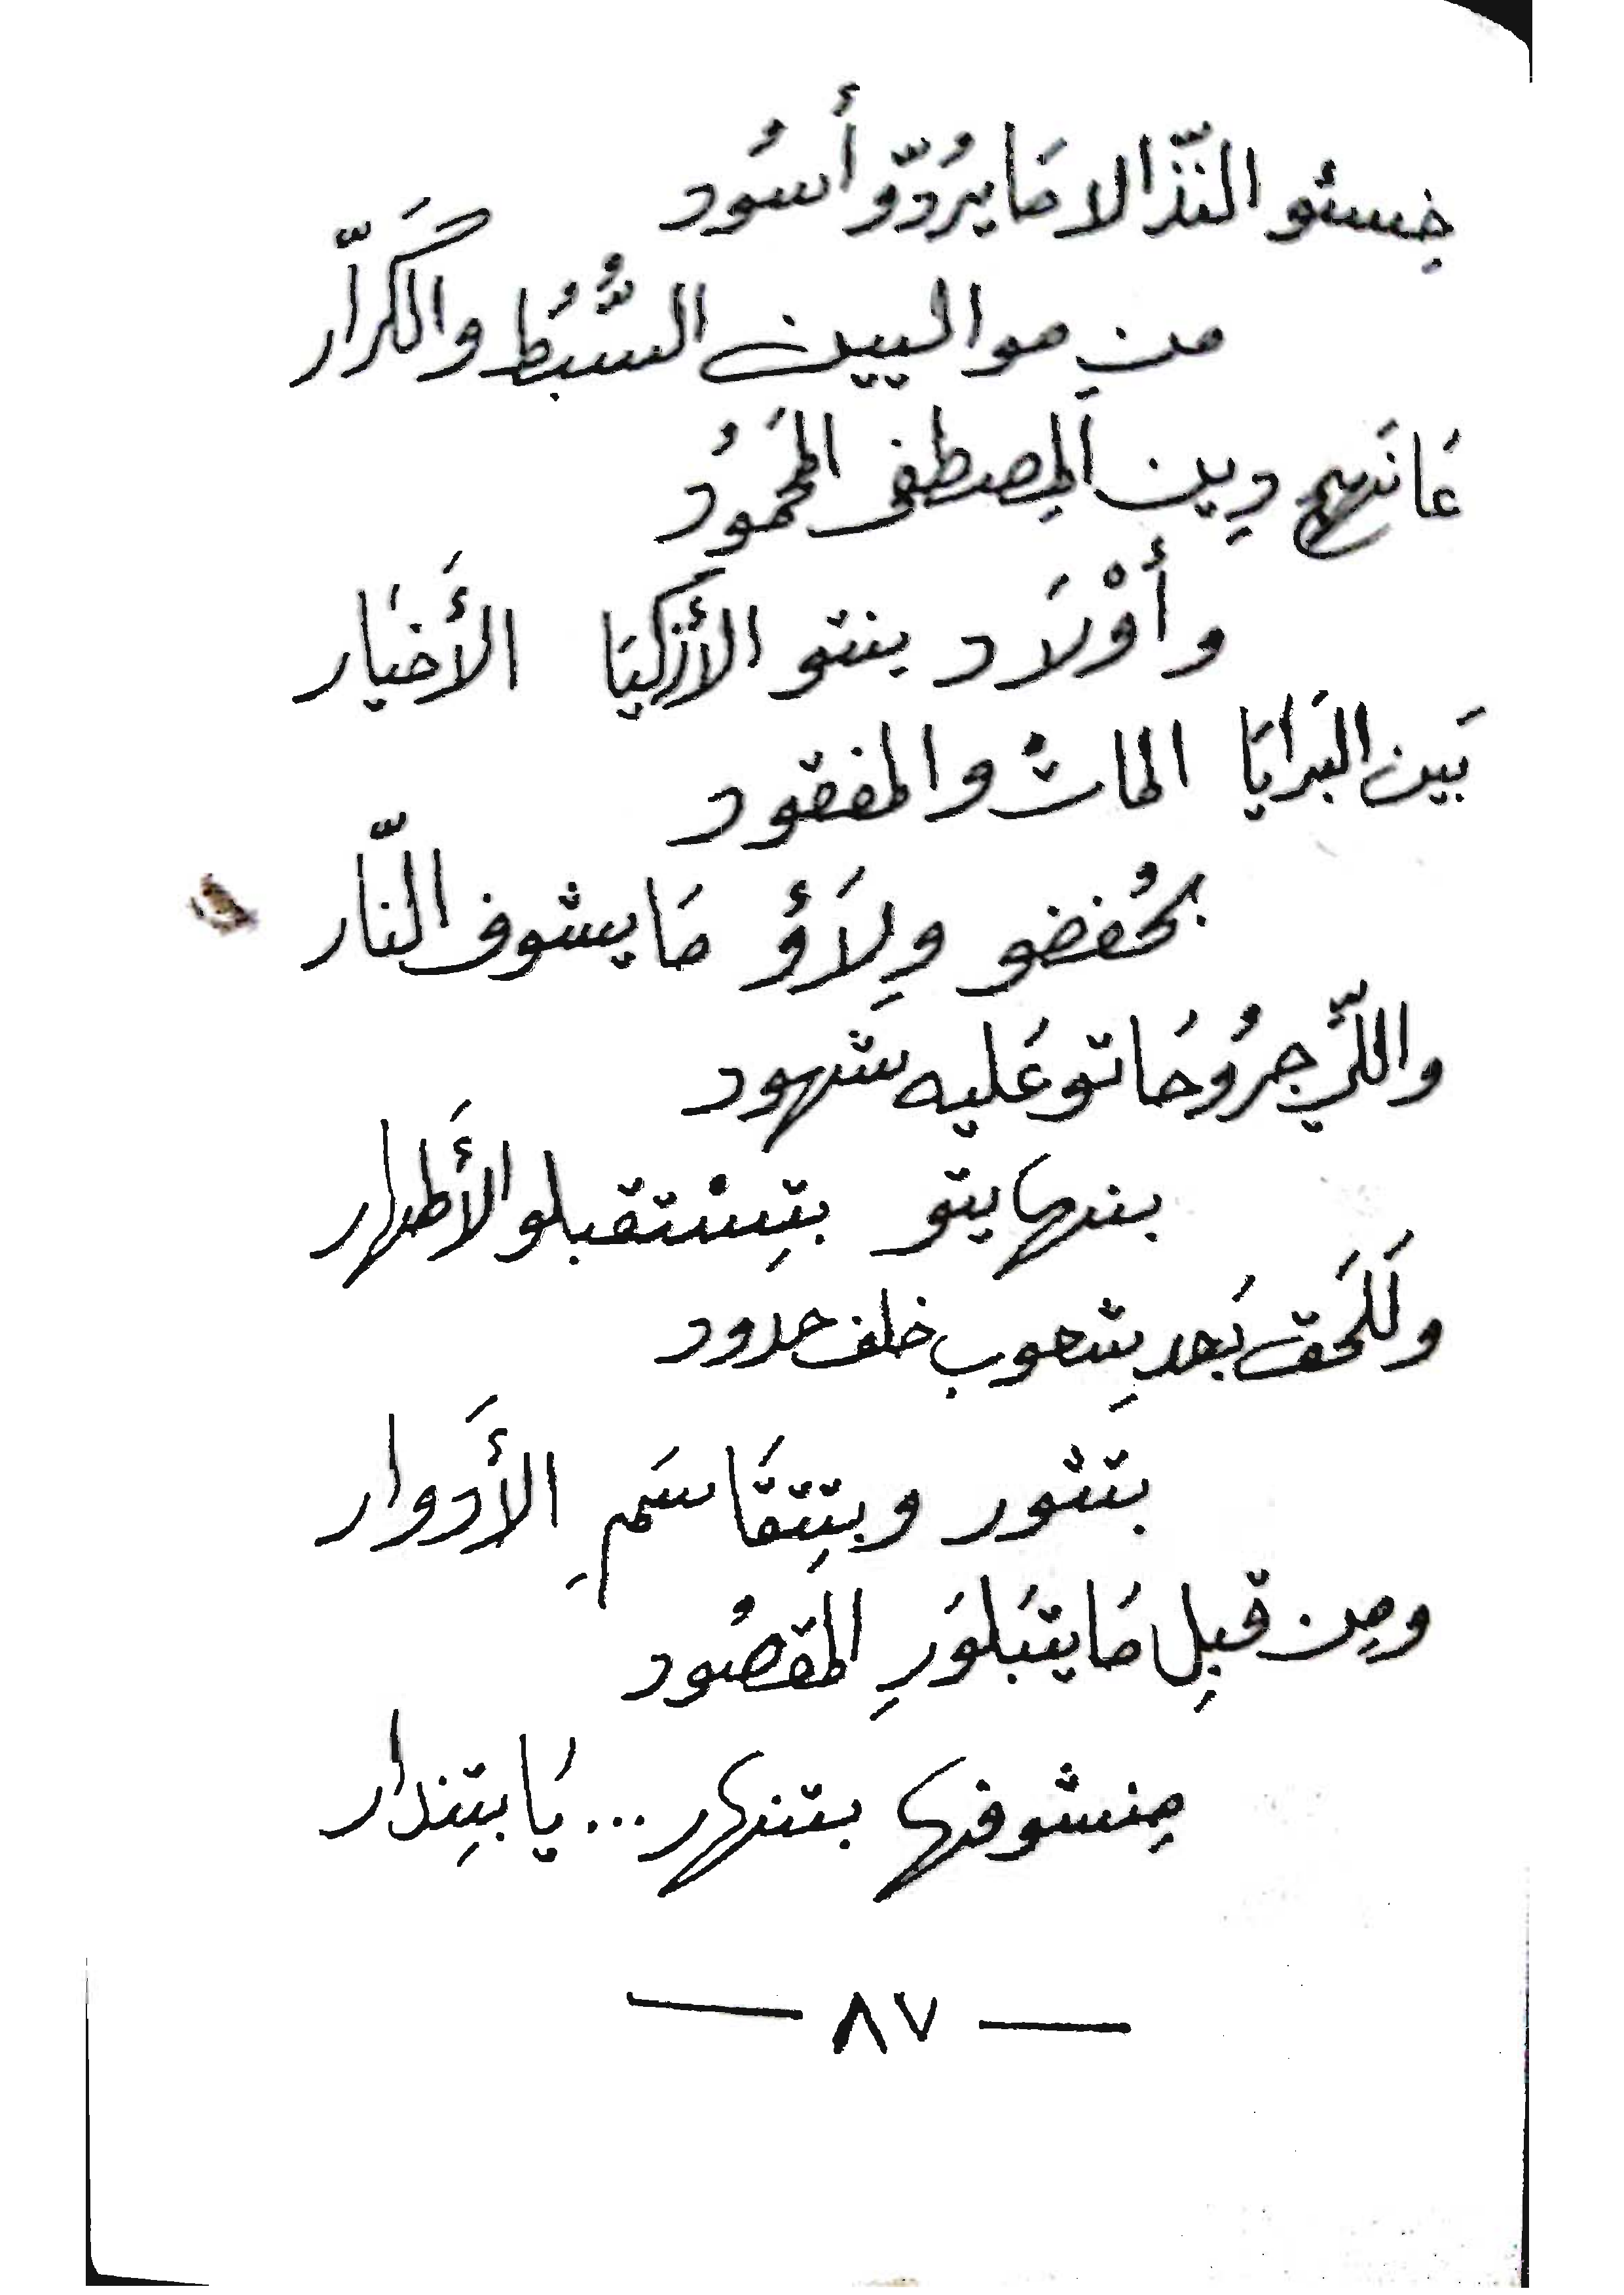 خِسئو النّذالا مَا يرُدّو أسُود
منِ مواليين السُّبُط والكَرّار
عَا نَهج دِين المِصطفى المَحمُود
وأوْلَاد بنتو الأزكيَا الأَخيَار
بَين البَرايَا المات والمفقود
بحُفضو وِلَاؤ مَا يشوف النّار
واللّي جرُوحَاتو عَليه شهود
بنهايتو بتِسْتقبلو الأَطهار
ولَلحَق بَعد شعوب خلف حدود
بتثور وبتِتقَاسَمِ الأَدوار
ومِن قبلِ مَا يتبَلوَرِ المقصُود
مِنشوفها بتنهار... يَا بتِندار
— ٨٧ —